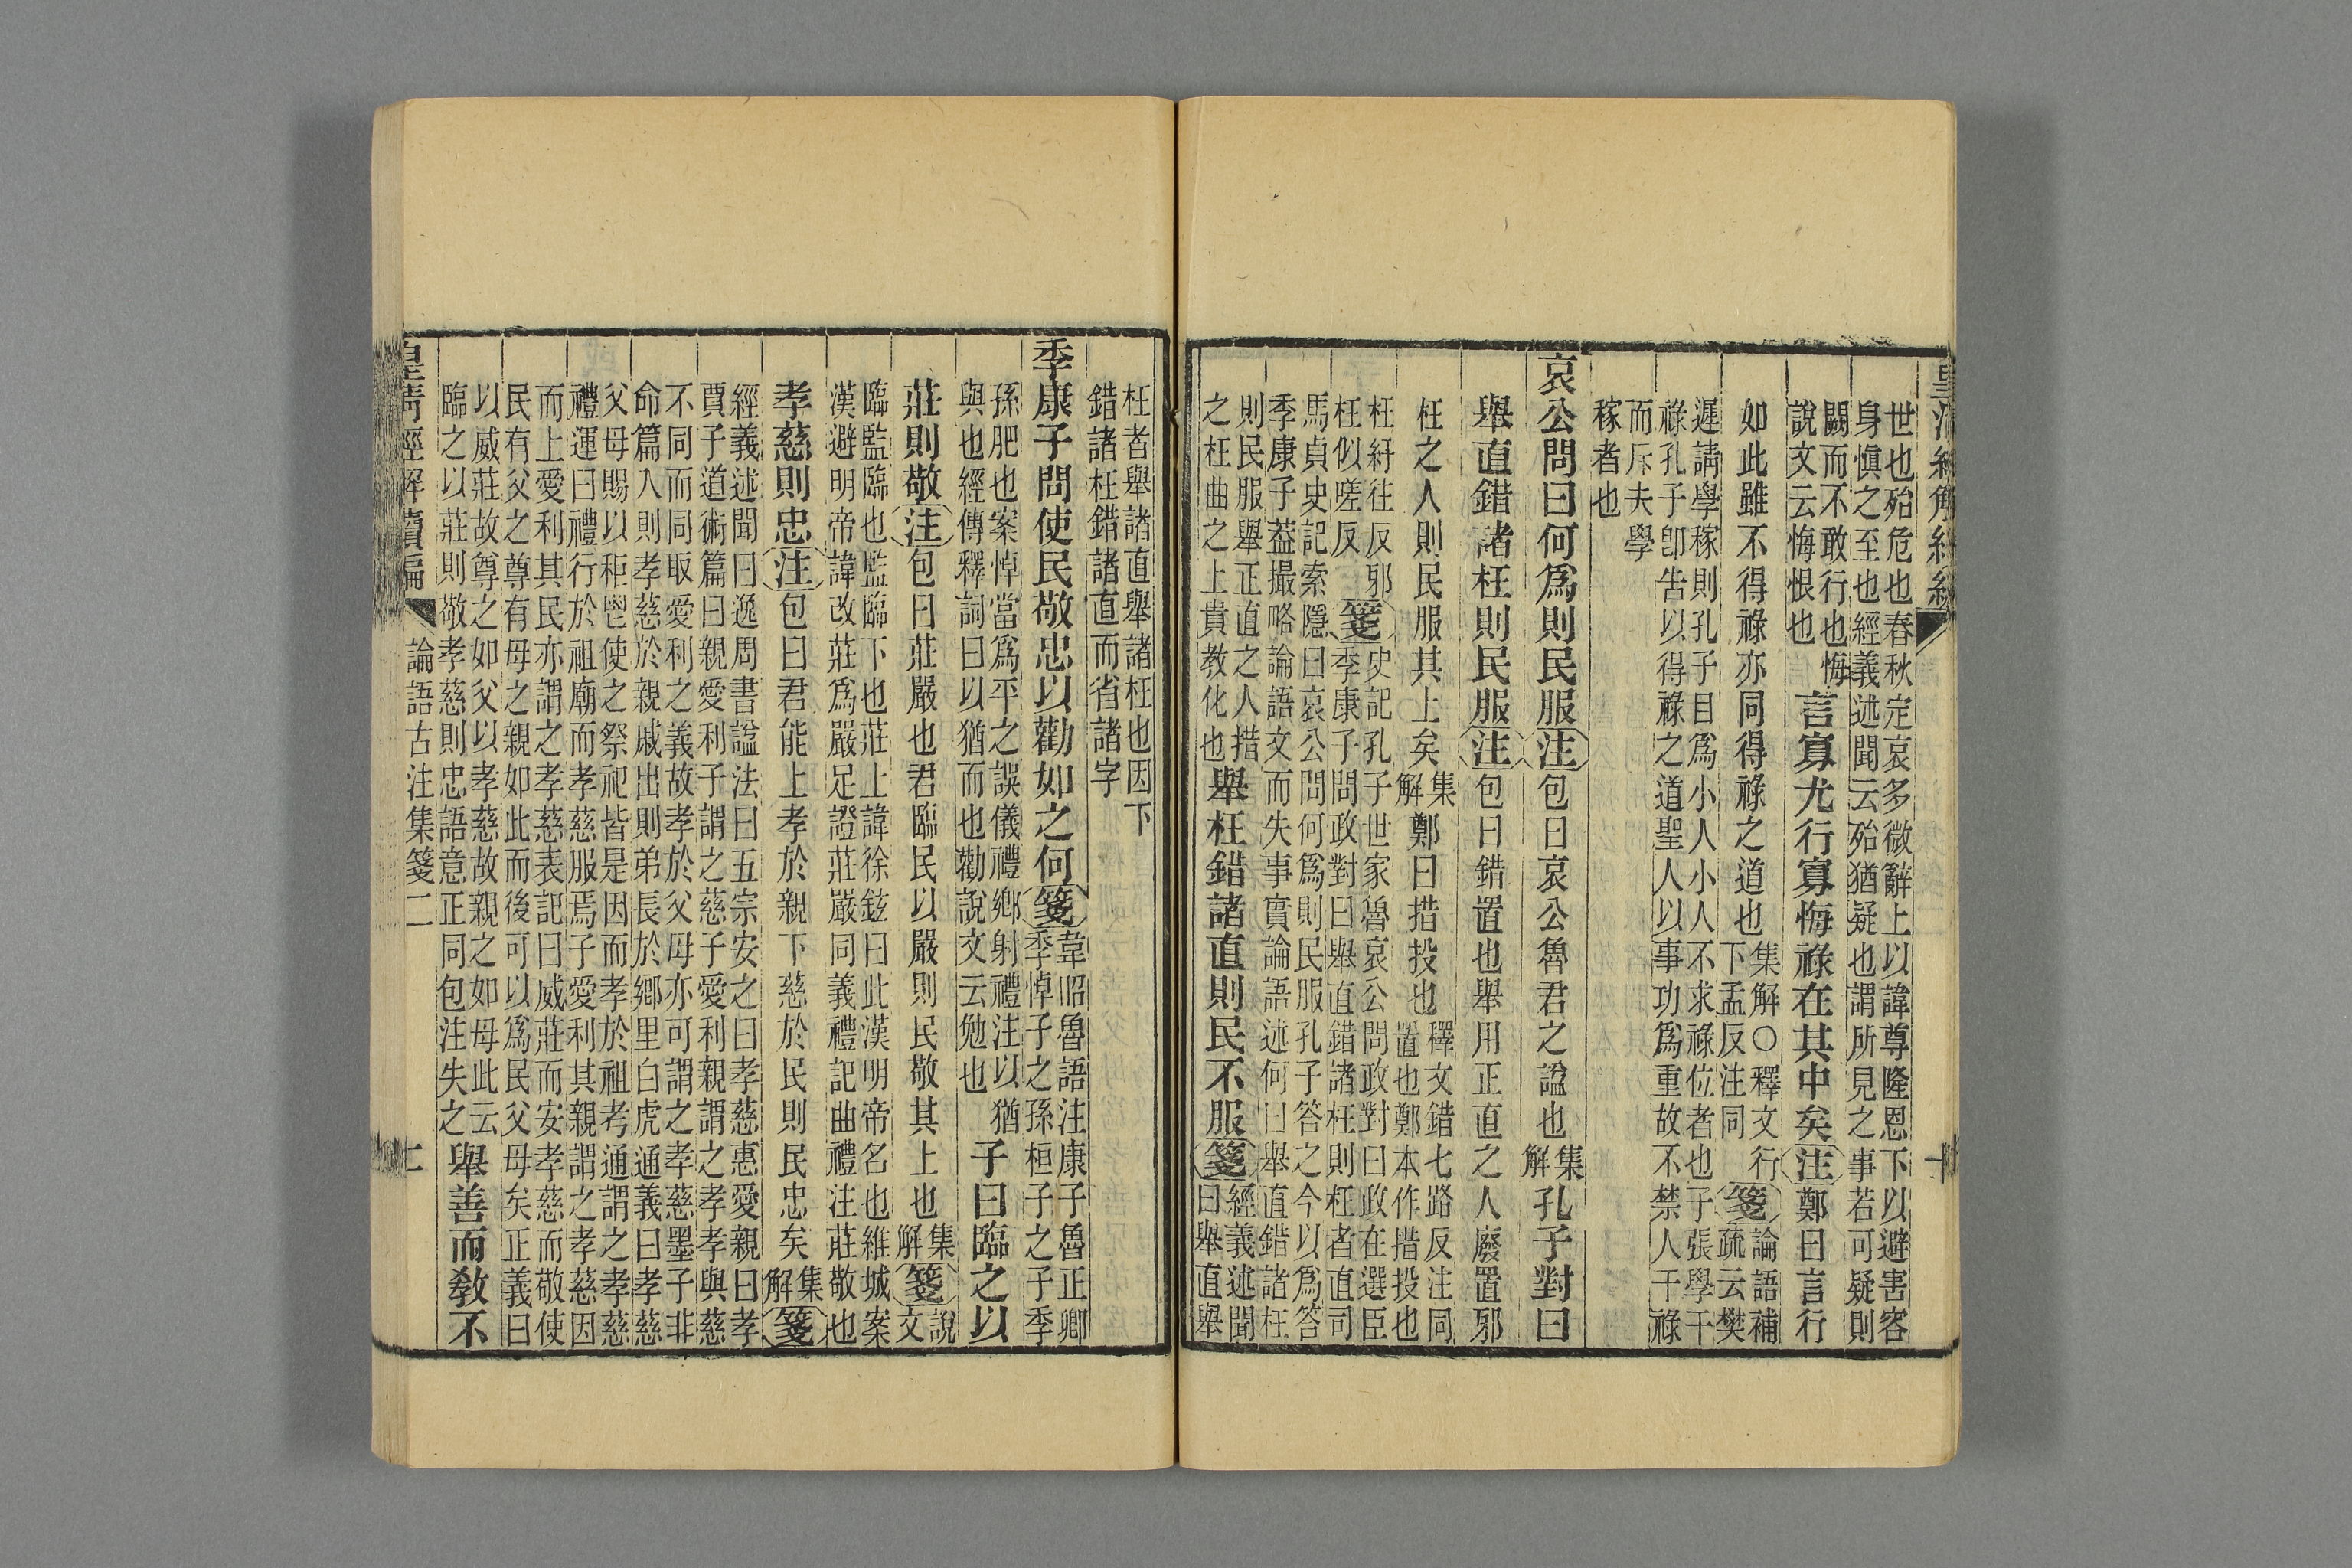 皇清經解續編
世也殆危也春秋定哀多微辭上以諱尊隆恩下以避害容
身愼之至也經義述聞云殆猶疑也謂所見之事若可疑則
闕而不敢行也悔
說文云悔恨也
言寡尤行寡悔祿在其中矣注鄭曰言行
如此雖不得祿亦同得祿之道也
集解〇釋文行
下孟反注同
箋
論語補
疏云樊
遲請學稼則孔子目爲小人小人不求祿位者也子張學干
祿孔子卽告以得祿之道聖人以事功爲重故不禁人干祿
而斥夫學
稼者也
哀公問曰何爲則民服注包曰哀公魯君之諡也集解孔子對曰
舉直錯諸枉則民服注包曰錯置也舉用正直之人廢置邪
枉之人則民服其上矣集解鄭曰措投也
釋文錯七路反注同
置也鄭本作措投也
枉紆往反邪
枉似嗟反
箋
史記孔子世家魯哀公問政對曰政在選臣
季康子問政對曰舉直錯諸枉則枉者直司
馬貞史記索隱曰哀公問何爲則民服孔子答之今以爲答
季康子葢撮略論語文而失事實論語述何曰舉直錯諸枉
則民服舉正直之人措
之枉曲之上貴教化也
舉枉錯諸直則民不服箋
經義述聞
曰舉直舉
十
枉者舉諸直舉諸枉也因下
錯諸枉錯諸直而省諸字
季康子問使民敬忠以勸如之何箋
韋昭魯語注康子魯正卿
季悼子之孫桓子之子季
孫肥也案悼當爲平之誤儀禮鄉射禮注以猶
與也經傳釋詞曰以猶而也勸說文云勉也
子曰臨之以
莊則敬注包曰莊嚴也君臨民以嚴則民敬其上也集解箋
說
文
臨監臨也監臨下也莊上諱徐鉉曰此漢明帝名也維城案
漢避明帝諱改莊爲嚴足證莊嚴同義禮記曲禮注莊敬也
孝慈則忠注包曰君能上孝於親下慈於民則民忠矣集解箋
經義述聞曰逸周書諡法曰五宗安之曰孝慈惠愛親曰孝
賈子道術篇曰親愛利子謂之慈子愛利親謂之孝孝與慈
不同而同取愛利之義故孝於父母亦可謂之孝慈墨子非
命篇入則孝慈於親戚出則弟長於鄉里白虎通義曰孝慈
父母賜以秬鬯使之祭祀皆是因而孝於祖考通謂之孝慈
禮運曰禮行於祖廟而孝慈服焉子愛利其親謂之孝慈因
而上愛利其民亦謂之孝慈表記曰威莊而安孝慈而敬使
民有父之尊有母之親如此而後可以爲民父母矣正義曰
以威莊故尊之如父以孝慈故親之如母此云
臨之以莊則敬孝慈則忠語意正同包注失之
舉善而敎不
皇清經解續編 論語古注集箋二